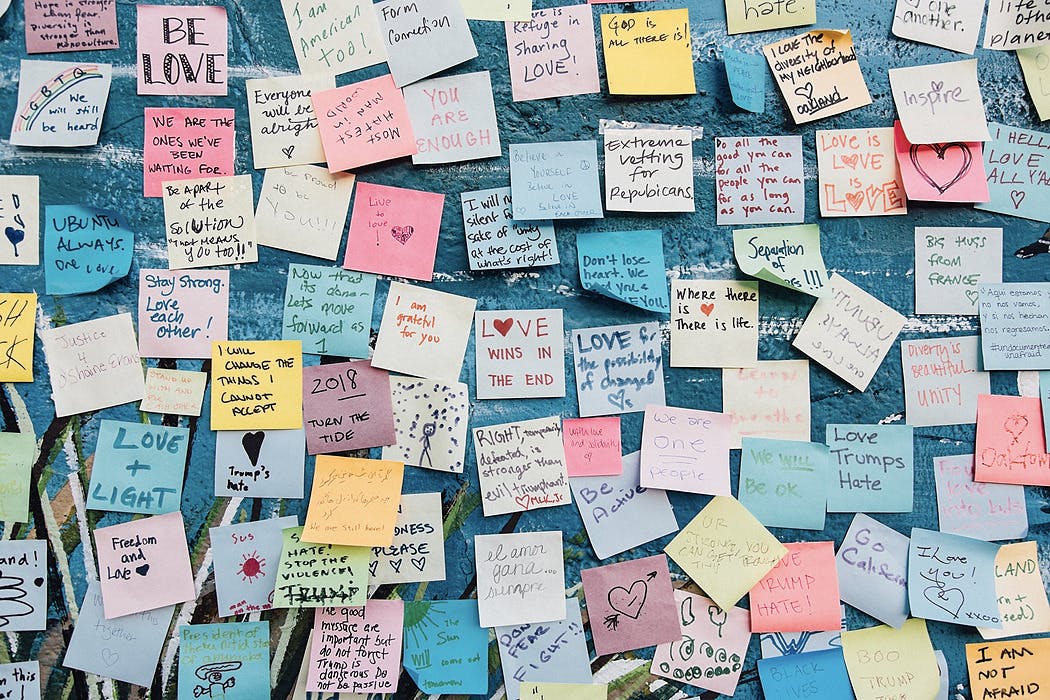 Hope is stronger
than fear.
Diversity is
stronger than
monoculture.
BE
LOVE
I am
American
too!
Form
Connection
Refuge in
Sharing
LOVE!
GOD is
ALL THERE is!
hate.
I LOVE the
diversity of
MY NEIGHBORHOOD
oakland
another.
life
other
planet
LGBTQ
We
will still
be heard
WE ARE THE
ONES WE'VE
BEEN
WAITING FOR.
Everyone
will be
alright
YOU
ARE
ENOUGH
Believe in
YOURSELF
Believe in
LOVE
Believe in
EACH OTHER
Extreme
vetting
for
Repubicans.
Do all the
good you can
for all the
people you can
for as long
as you can.
Love is
LOVE
is
LOVE
Inspire
I HELLA
LOVE
ALL Y'A
UBUNTU
ALWAYS.
one love.
Be A part
of the
SoLUtioN
"that MEANS
you too!!"
be proud
to be
YOU!!!
Live
to
love
!
I will n
silent
sake of unity
at the cost of
what's right!
Don't lose
heart. We
are
YOU!
Separation
of
!!!
BIG HUGS
FROM
FRANCE
Stay Strong.
Love
each
other!
Now that
its done-
Lets move
forward as
1
I am
grateful
for you
LOVE
WINS IN
THE END
LOVE for
the possibility
of changed
Where there
is
There is life.
UBUNTU
ALWAYS
one love
Aqui estamos
no nos vamos,
y si nos hechan
nos regresamos.
#undocumented
unafraid
Diverty is
beautiful.
UNITY
Justice
4
I WILL
CHANGE THE
THINGS I
CANNOT
ACCEPT
2018
TURN THE
TIDE
LOVE
+
LIGHT
Trump's
hate
RIGHT, temporarily
defeated, is
stronger than
evil triumphant.
MLK, Jr
with love
and solidarity
Be
Active
We are
ONE
people
We will
Be ok
Love
Trumps
Hate
We are still here!
Freedom
and
Love
SUS
HATE!
STOP THE
VIOLENCE!
PLEASE
el amor
gana...
siempre
UR
STRONG, YOU
CAN GET
LOVE
TRUMP
HATE!
Go
I Love
You!
xxoo
LAND
together
President of
feel good
message are
important but
do not forget
Trump is
dangerous Do
not be passive
The
Sun
Will come out
tomorrow
DON'T
FEAR
FIGHT!!
BLACK
LIVES
BOO
TRUMP
I AM
NOT
AFRAID